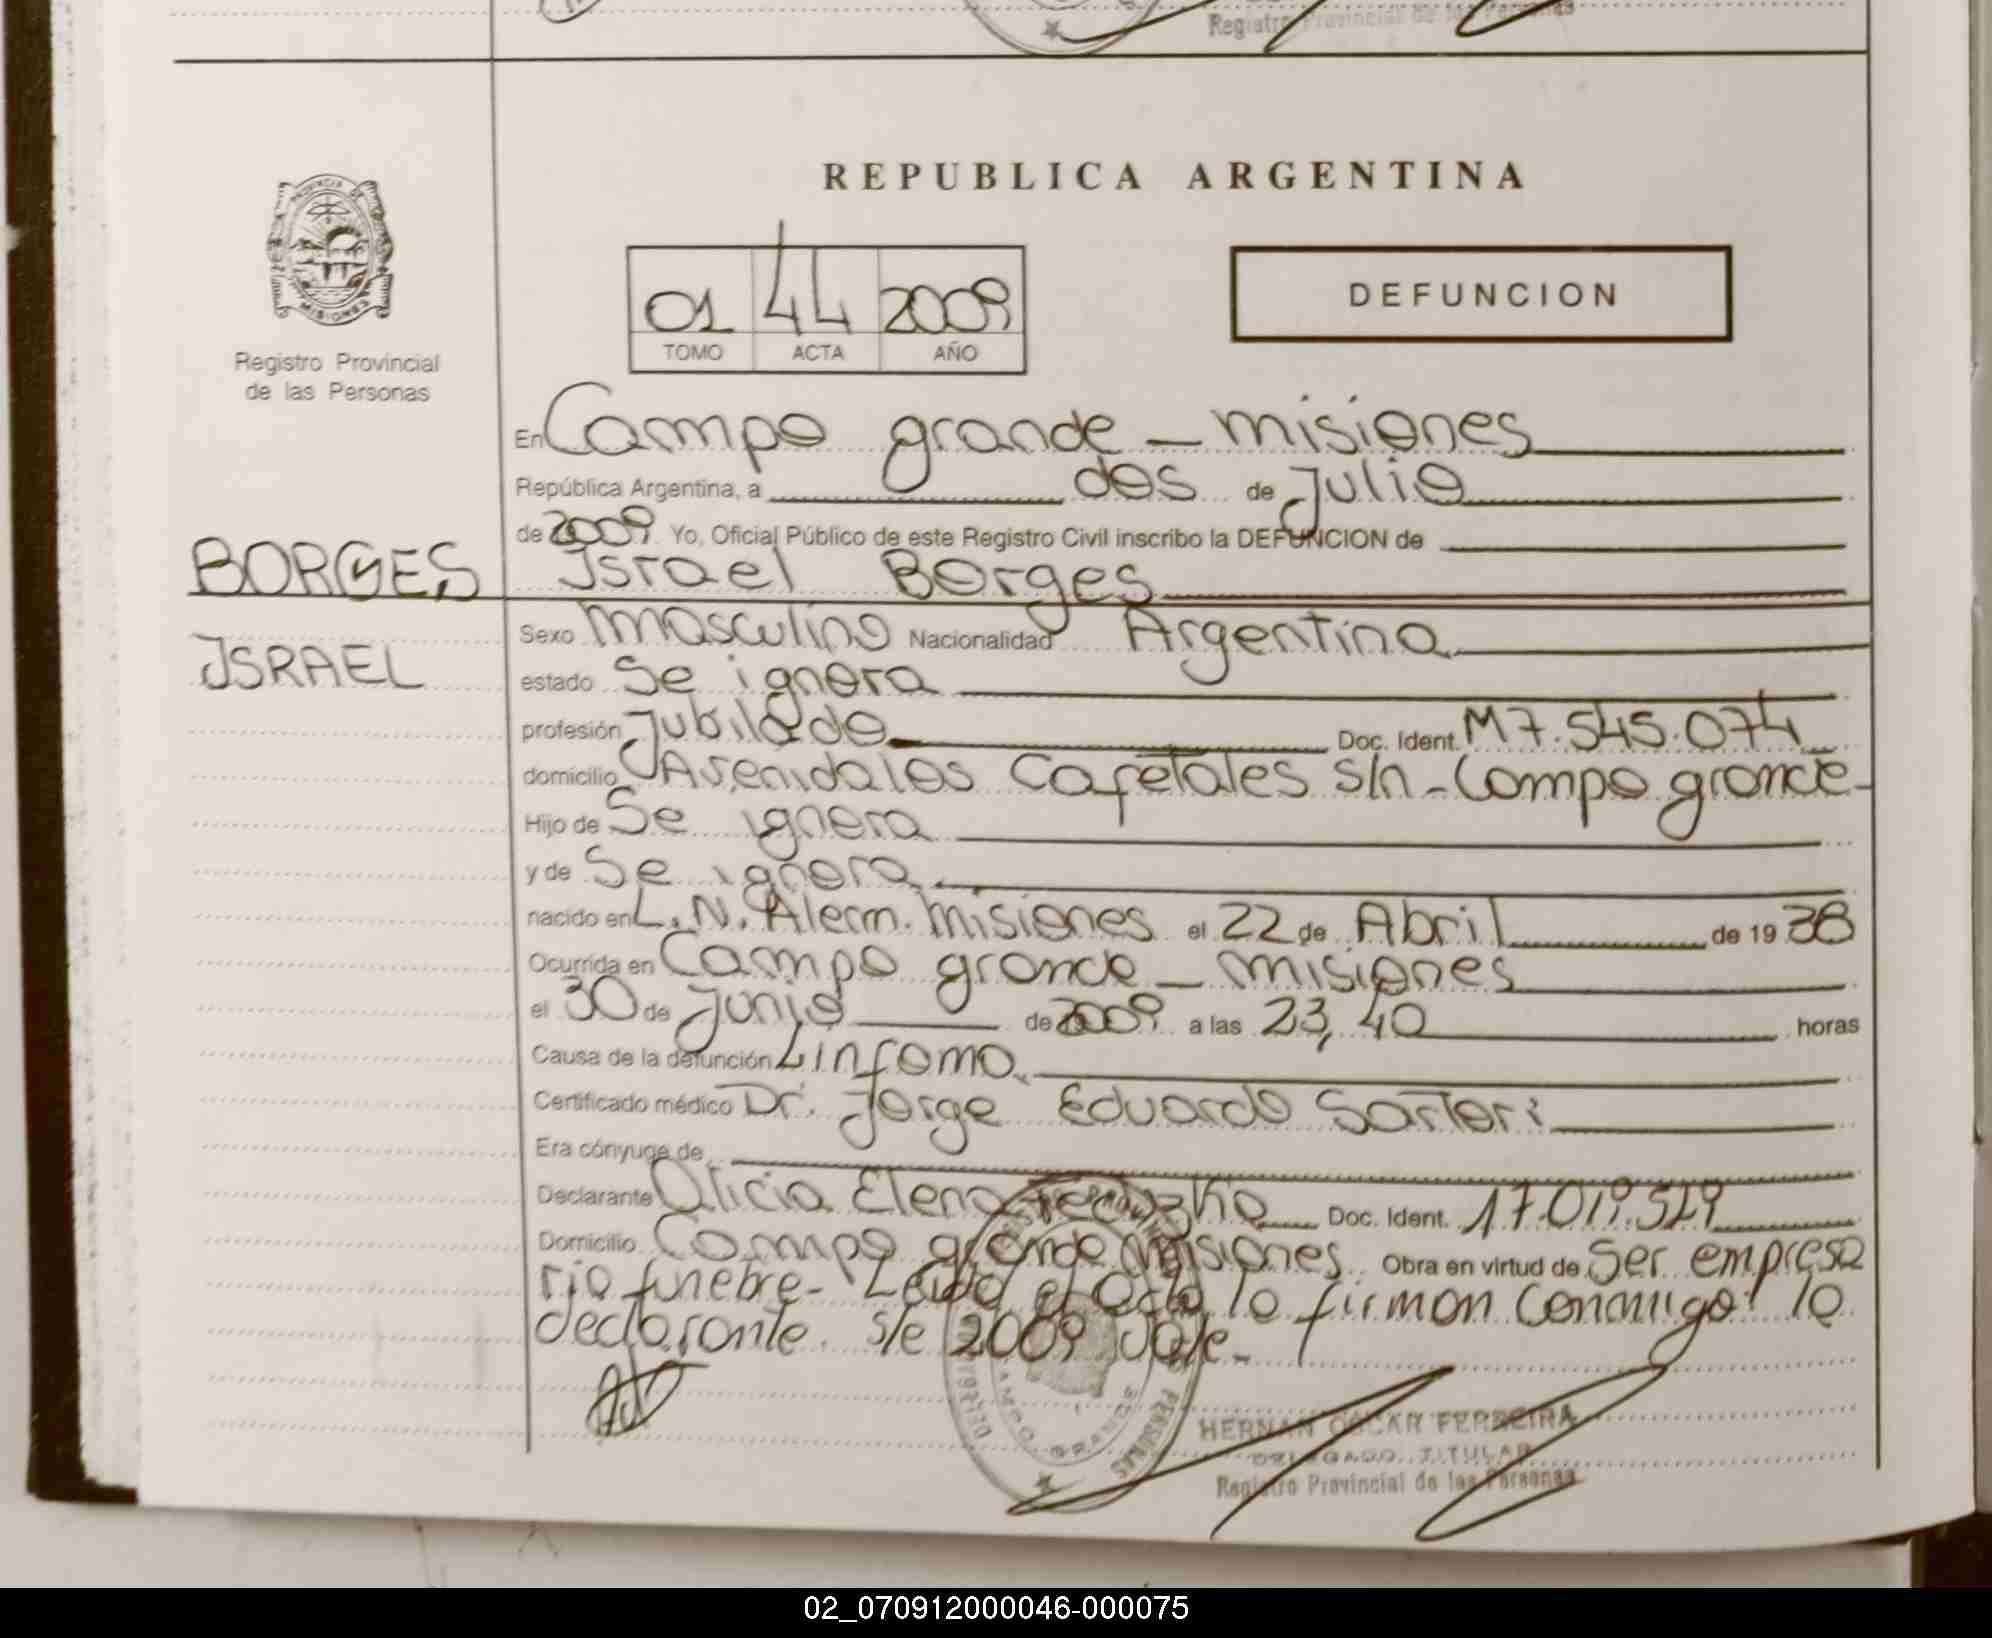 Registro Provincial de las Personas
REPUBLICA ARGENTINA
PROVINCIA DE
MISIONES
Registro Provincial
de las Personas
01 44 2009
TOMO ACTA AÑO
DEFUNCION
En Campo grande - misiones
República Argentina, a dos de Julio
de 2009 Yo, Oficial Público de este Registro Civil inscribo la DEFUNCION de
BORGES
Israel Borges
ISRAEL
Sexo masculino Nacionalidad Argentina
estado Se ignora
profesión Jubilado Doc. Ident. M7.545.074
domicilio Avenida los Cafetales s/n - Campo grande -
Hijo de Se ignora
y de Se ignora
nacido en L. N. Alem. misiones el 22 de Abril de 19 38
Ocurrida en Campo grande - misiones
el 30 de Junio de 2009 a las 23,40 horas
Causa de la defunción Linfoma
Certificado médico Dr. Jorge Eduardo Sartori
Era cónyuge de
Declarante Alicia Elena Doc. Ident. 17.019.529
Domicilio Campo grande misiones Obra en virtud de Ser empresa
rio funebre - Leida el acta lo firman conmigo: la
declarante. s/e 2009 Vale -
CAMPO GRANDE
HERNAN OSCAR FERREIRA
DELEGADO TITULAR
Registro Provincial de las Personas
02_070912000046-000075